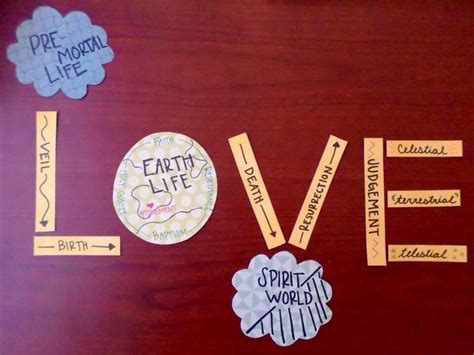 PRE-
MORTAL
LIFE
VEIL
BIRTH
FAITH
REPENTANCE
BAPTISM
HOLY GHOST
EARTH
LIFE
ATONEMENT
DEATH
SPIRIT
WORLD
RESURRECTION
JUDGEMENT
Celestial
terrestrial
telestial